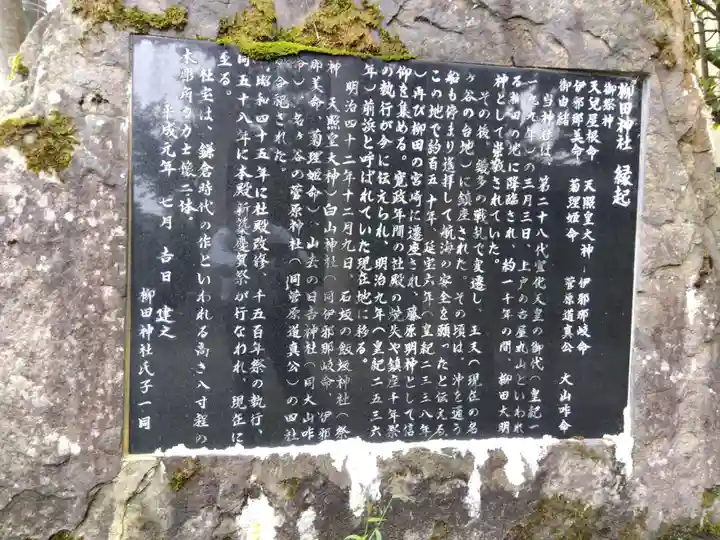 柳田神社 縁起
御祭神
天兒屋根命 天照皇大神 伊邪那岐命
伊邪那美命 菊理姫命 菅原道真公 大山咋命
御由緒
当神社は、第二十八代宣化天皇の御代(皇紀一
一九九年)の三月三日、上戸の古屋丸山といわれ
る柳田の地に降臨され、約一千年の間、柳田大明
神として崇敬されていた。
その後、幾多の戦乱で変遷し、王天(現在の名
ヶ谷の台地)に鎮座された。その頃は、沖を通う
船も停まり遙拝して航海の安全を願ったと伝える
この地で約百五十年、延宝六年(皇紀二三三八年
)再び柳田の宮崎に遷座され、藤原明神として信
仰を集める。寛政年間の社殿の焼失や鎮座千年祭
の執行が今に伝えられ、明治九年(皇紀二五三六
年)前浜と呼ばれていた現在地に移る。
明治四十二年十二月九日、石坂の飯坂神社(祭
神 天照皇大神)白山神社(同伊邪那岐命、伊邪
那美命、菊理姫命)山去の日吉神社(同大山咋
命)名ヶ谷の菅原神社(同菅原道真公)の四社
が合祀された。
昭和四十五年に社殿改修、千五百年祭の執行、
同五十八年に本殿新築慶賀祭が行なわれ、現在に
至る。
社宝は、鎌倉時代の作といわれる高さ八寸程の
木彫府の力士像二体。
平成元年 七月 吉日 建之
柳田神社氏子一同